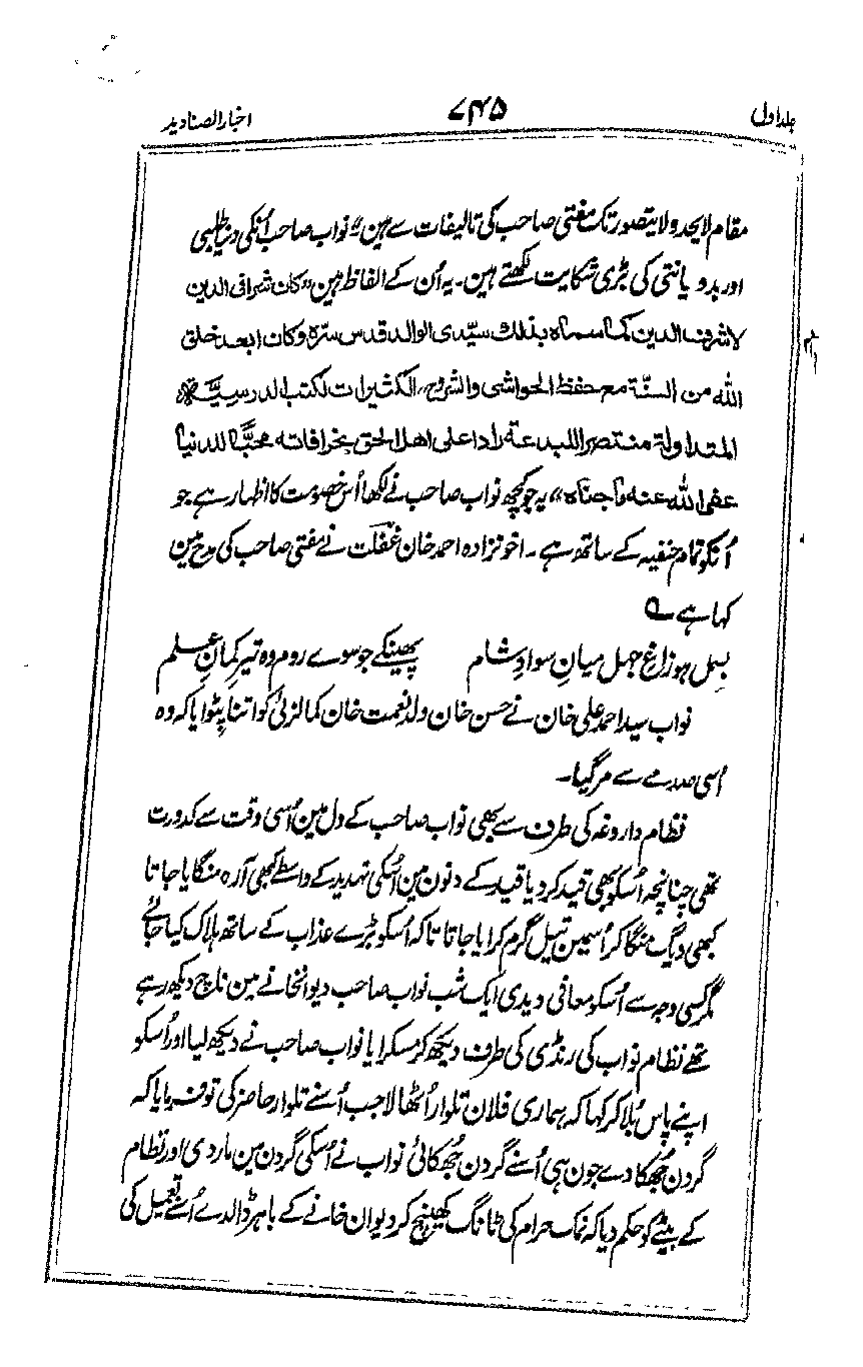 جلد اول
۷۴۵
اخبار الصنادید
مقام لایحد ولایتصور تک مفتی صاحب کی تالیفات سے ہین" نواب صاحب اُنکی دنیا طلبی
اور بد دیانتی کی بڑی شکایت لکھتے ہین۔ یہ اُن کے الفاظ ہین "کان شرافی الدین
لاشرف الدین کما سماہ بذلک سیّدی الوالد قدس سرّہ وکان ابعد خلق
اللہ من السنّة مع حفظ الحواشی والشروح الکثیرات لکتب الدرسیّة
المتداولة منتصرا للبدعة رادا علی اهل الحق بخرافاته محبًّا للدنیا
عفی اللہ عنه ماجناہ" یہ جو کچھ نواب صاحب نے لکھا اُس خصومت کا اظہار ہے جو
اُنکو تمام حنفیہ کے ساتھ ہے۔ اخوندزادہ احمد خان غفلت نے مفتی صاحب کی مدح مین
کہا ہے ؎
بسمل ہو زاغ جہل میانِ سوادِ شام پھینکے جو سوے روم وہ تیر کمانِ علم
نواب سید احمد علی خان نے حسن خان ولد نعمت خان کمالزئی کو اتنا پٹوایا کہ وہ
اُسی صدمے سے مرگیا۔
نظام داروغہ کی طرف سے بھی نواب صاحب کے دل مین اُسی وقت سے کدورت
تھی چنانچہ اُسکو بھی قید کر دیا قید کے دنون مین اُسکی تہدید کے واسطے کبھی آرہ منگایا جاتا
کبھی دیگ منگا کر اُسمین تیل گرم کرایا جاتا تاکہ اُسکو بڑے عذاب کے ساتھ ہلاک کیا جائے
مگر کسی وجہ سے اُسکو معافی دیدی ایک شب نواب صاحب دیوانخانے مین ناچ دیکھ رہے
تھے نظام نواب کی رنڈی کی طرف دیکھ کر مسکرایا نواب صاحب نے دیکھ لیا اور اُسکو
اپنے پاس بُلا کر کہا کہ ہماری فلان تلوار اُٹھا لا جب اُسنے تلوار حاضر کی تو فرمایا کہ
گردن جُھکا دے جون ہی اُسنے گردن جُھکائی نواب نے اُسکی گردن مین مار دی اور نظام
کے بیٹے کو حکم دیا کہ نمک حرام کی ٹانگ کھینچ کر دیوان خانے کے باہر ڈالدے اُسنے تعمیل کی